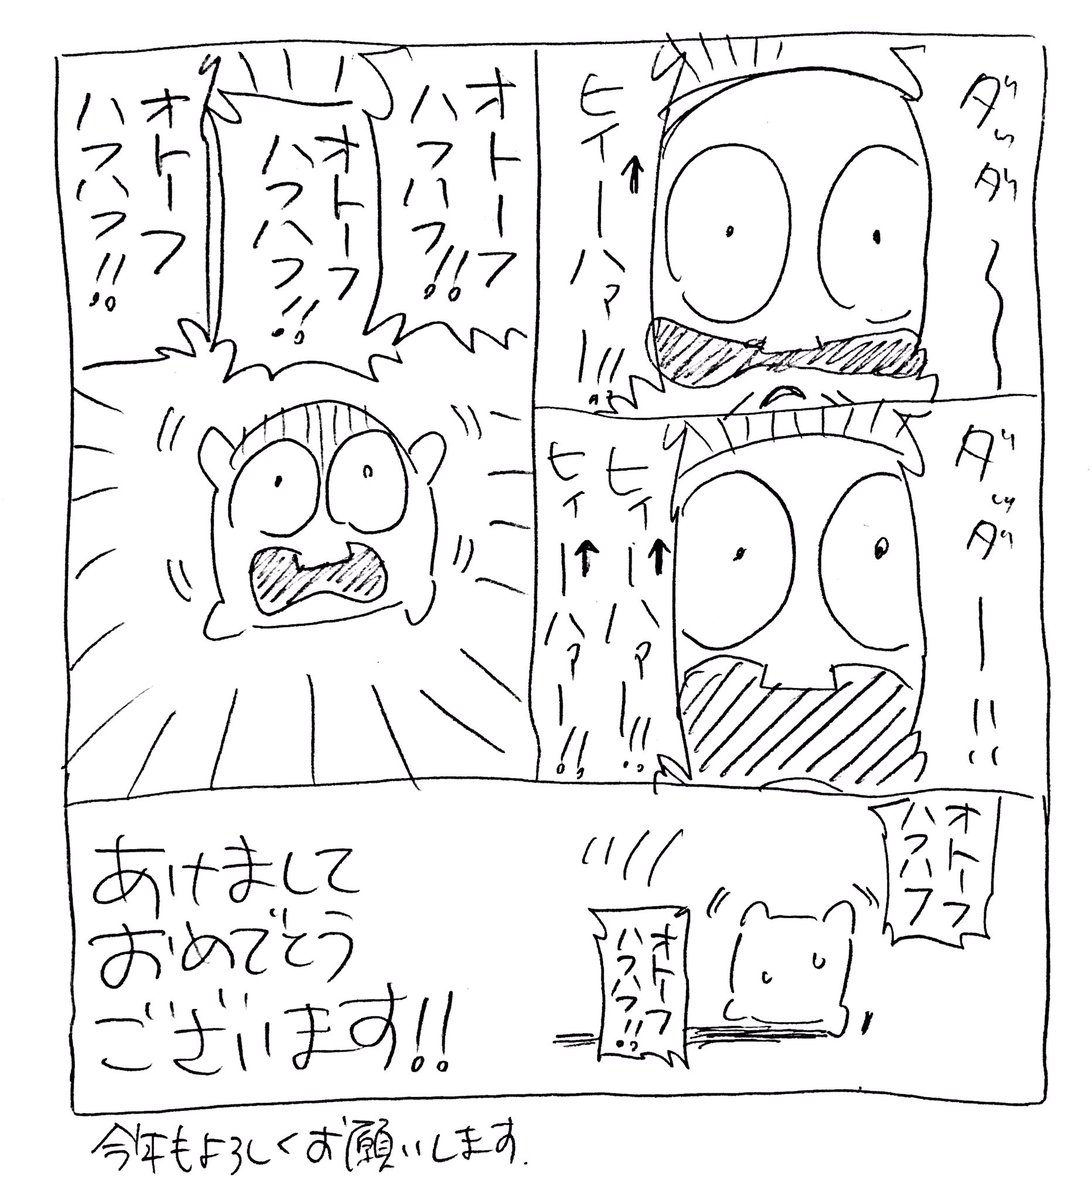 ダッダッ〜
ヒィ↑ーハァー!!
ダッダッー!!
ヒィ↑ーハァー!!
ヒィ↑ーハァー!!
オトーフ
ハフハフ!!
オトーフ
ハフハフ!!
オトーフ
ハフハフ!!
オトーフ
ハフハフ
オトーフ
ハフハフ!!
あけまして
おめでとう
ございます!!
今年もよろしくお願いします.